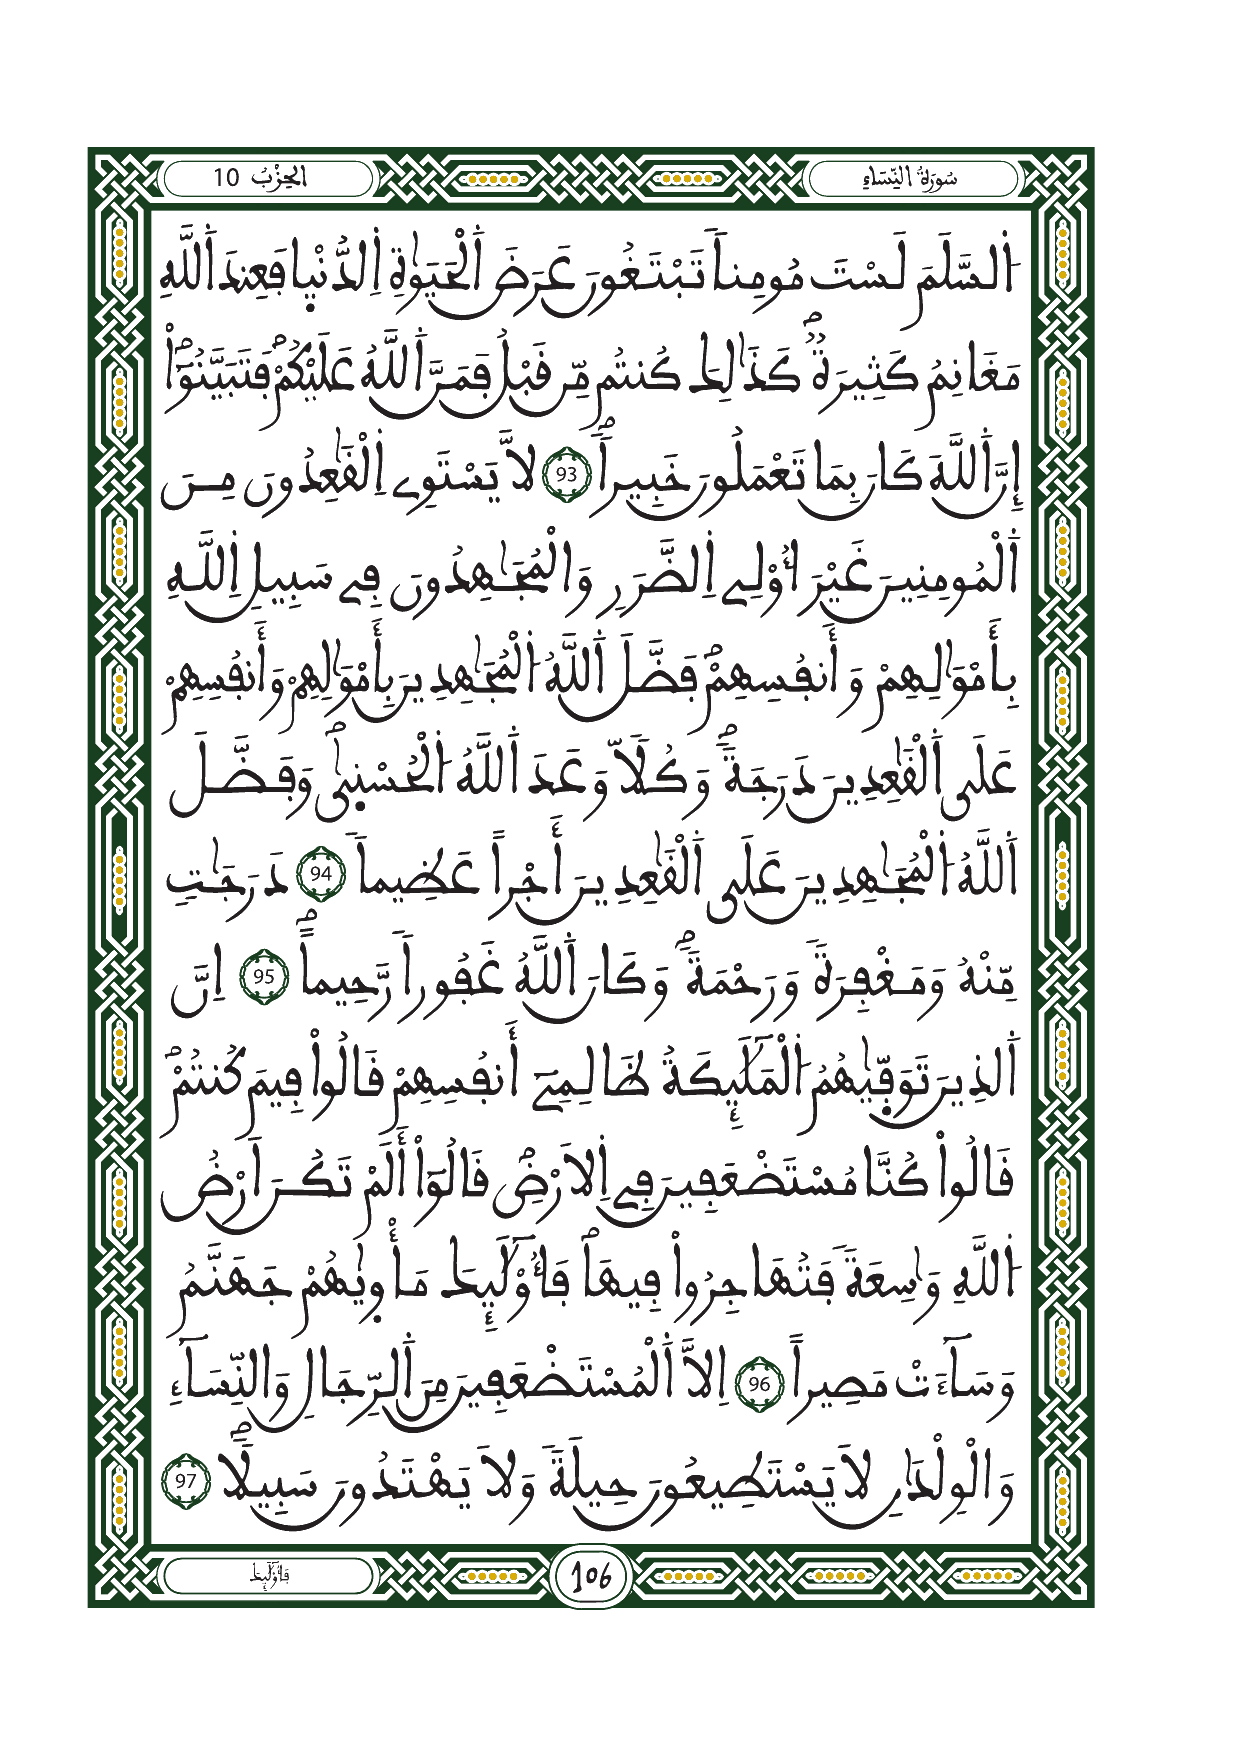 سُورَةُ النِّسَاءِ
الحِزْبُ 10
اَ۬لسَّلَٰمَ لَسْتَ مُومِناٗ تَبْتَغُونَ عَرَضَ اَ۬لْحَيَوٰةِ اِ۬لدُّنْي۪ا فَعِندَ اَ۬للَّهِ
مَغَانِمُ كَثِيرَةٞۖ كَذَٰلِكَ كُنتُم مِّن قَبْلُ فَمَنَّ اَ۬للَّهُ عَلَيْكُمْۖ فَتَبَيَّنُوٓاْۖ
إِنَّ اَ۬للَّهَ كَانَ بِمَا تَعْمَلُونَ خَبِيراٗۖ 93 لَّا يَسْتَوِے اِ۬لْقَٰعِدُونَ مِنَ
اَ۬لْمُومِنِينَ غَيْرَ أُوْلِے اِ۬لضَّرَرِ وَالْمُجَٰهِدُونَ فِے سَبِيلِ اِ۬للَّهِ
بِأَمْوَٰلِهِمْ وَأَنفُسِهِمْۖ فَضَّلَ اَ۬للَّهُ اُ۬لْمُجَٰهِدِينَ بِأَمْوَٰلِهِمْ وَأَنفُسِهِمْ
عَلَى اَ۬لْقَٰعِدِينَ دَرَجَةٗۖ وَكُلّاٗ وَعَدَ اَ۬للَّهُ اُ۬لْحُسْن۪ىٰۖ وَفَضَّلَ
اَ۬للَّهُ اُ۬لْمُجَٰهِدِينَ عَلَى اَ۬لْقَٰعِدِينَ أَجْراً عَظِيماٗ 94 دَرَجَٰتٖ
مِّنْهُ وَمَغْفِرَةٗ وَرَحْمَةٗۖ وَكَانَ اَ۬للَّهُ غَفُوراٗ رَّحِيماًۖ 95 اِنَّ
اَ۬لذِينَ تَوَفّ۪يٰهُمُ اُ۬لْمَلَٰٓئِكَةُ ظَالِمِےٓ أَنفُسِهِمْ قَالُواْ فِيمَ كُنتُمْۖ
قَالُواْ كُنَّا مُسْتَضْعَفِينَ فِے اِ۬لَارْضِۖ قَالُوٓاْ أَلَمْ تَكُنَ اَرْضُ
اُ۬للَّهِ وَٰسِعَةٗ فَتُهَاجِرُواْ فِيهَاۖ فَأُوْلَٰٓئِكَ مَأْو۪يٰهُمْ جَهَنَّمُ
وَسَآءَتْ مَصِيراً 96 اِلَّا اَ۬لْمُسْتَضْعَفِينَ مِنَ اَ۬لرِّجَالِ وَالنِّسَآءِ
وَالْوِلْدَٰنِ لَا يَسْتَطِيعُونَ حِيلَةٗ وَلَا يَهْتَدُونَ سَبِيلاٗۖ 97
106
فَأُوْلَٰٓئِكَ